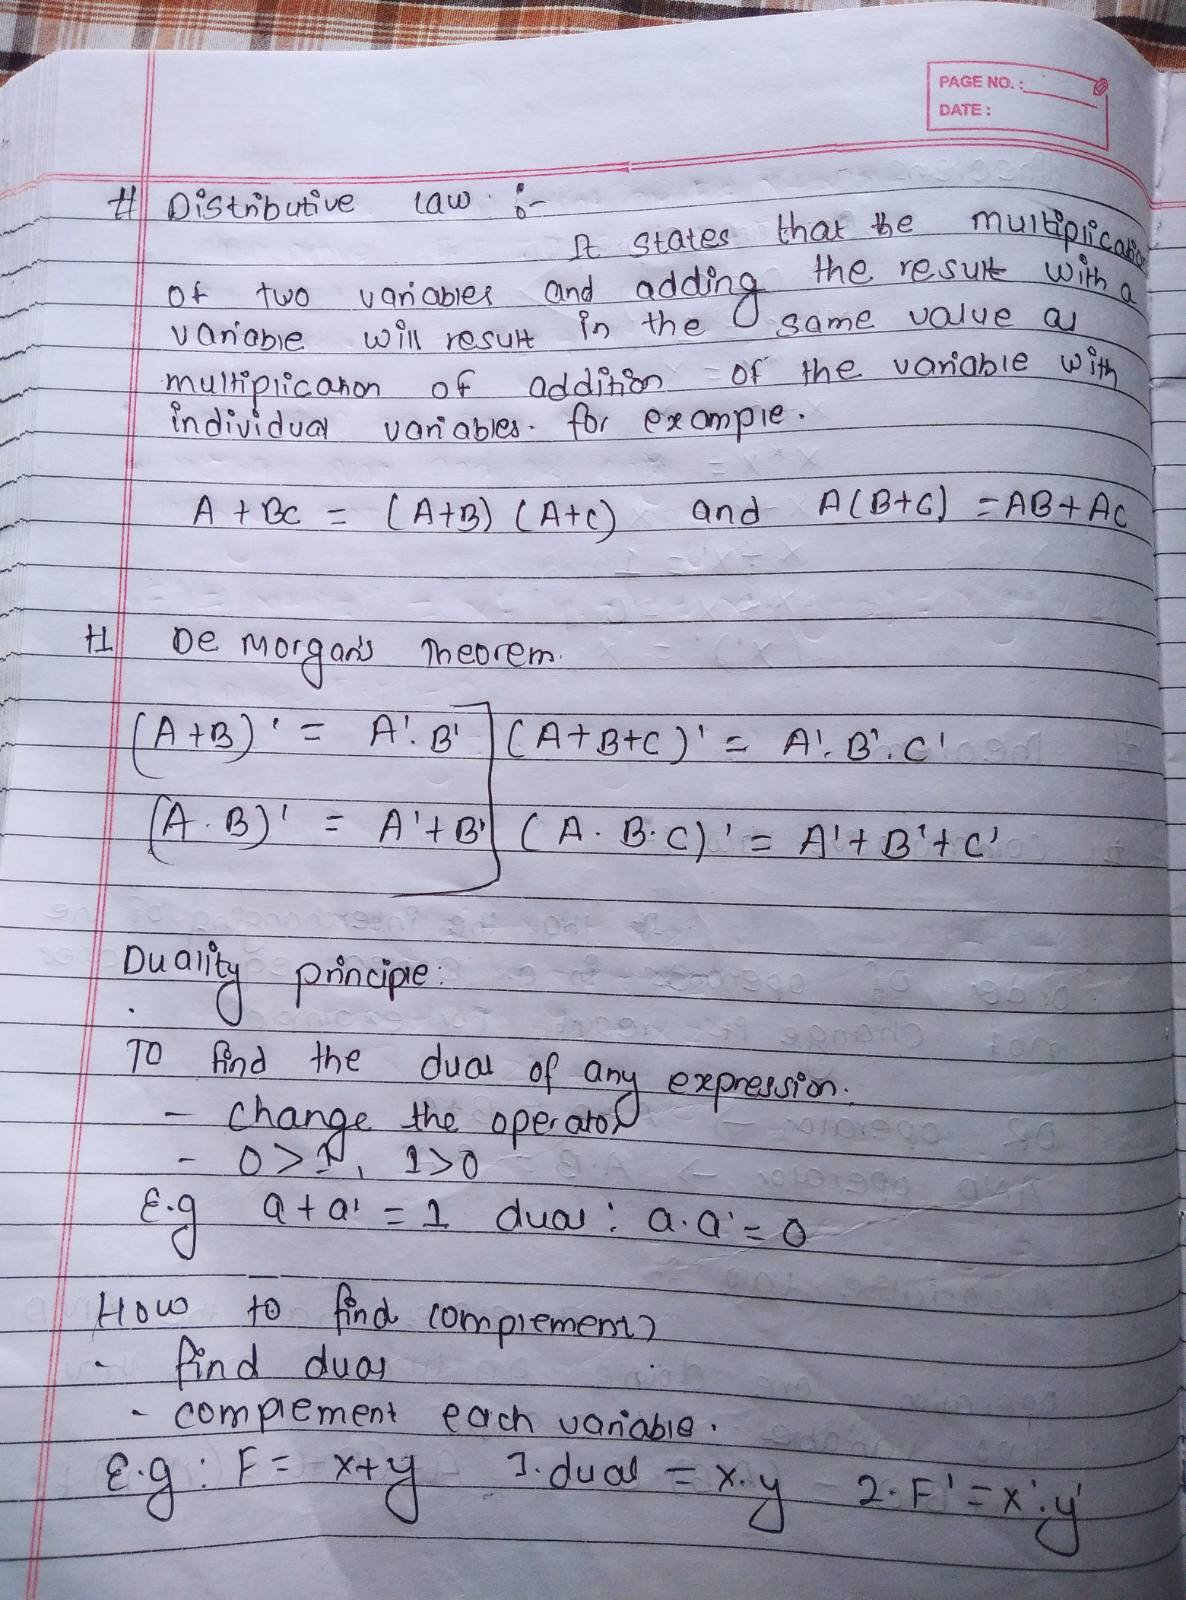 PAGE NO. :
DATE :
# Distributive law :-
It states that the multiplication
of two variables and adding the result with a
variable will result in the same value as
multiplication of addition of the variable with
individual variables. for example.
A + BC = (A+B) (A+C) and A(B+C) = AB + AC
# De Morgan's Theorem.
(A+B)' = A'. B' (A+B+C)' = A'. B'. C'
(A . B)' = A'+B' (A . B . C)' = A'+B'+C'
Duality principle:
To find the dual of any expression:
- change the operator
- 0>1, 1>0
E.g a+a' = 1 dual : a.a' = 0
How to find complement?
- find dual
- complement each variable.
E.g : F = x+y 1. dual = x.y 2. F' = x'.y'